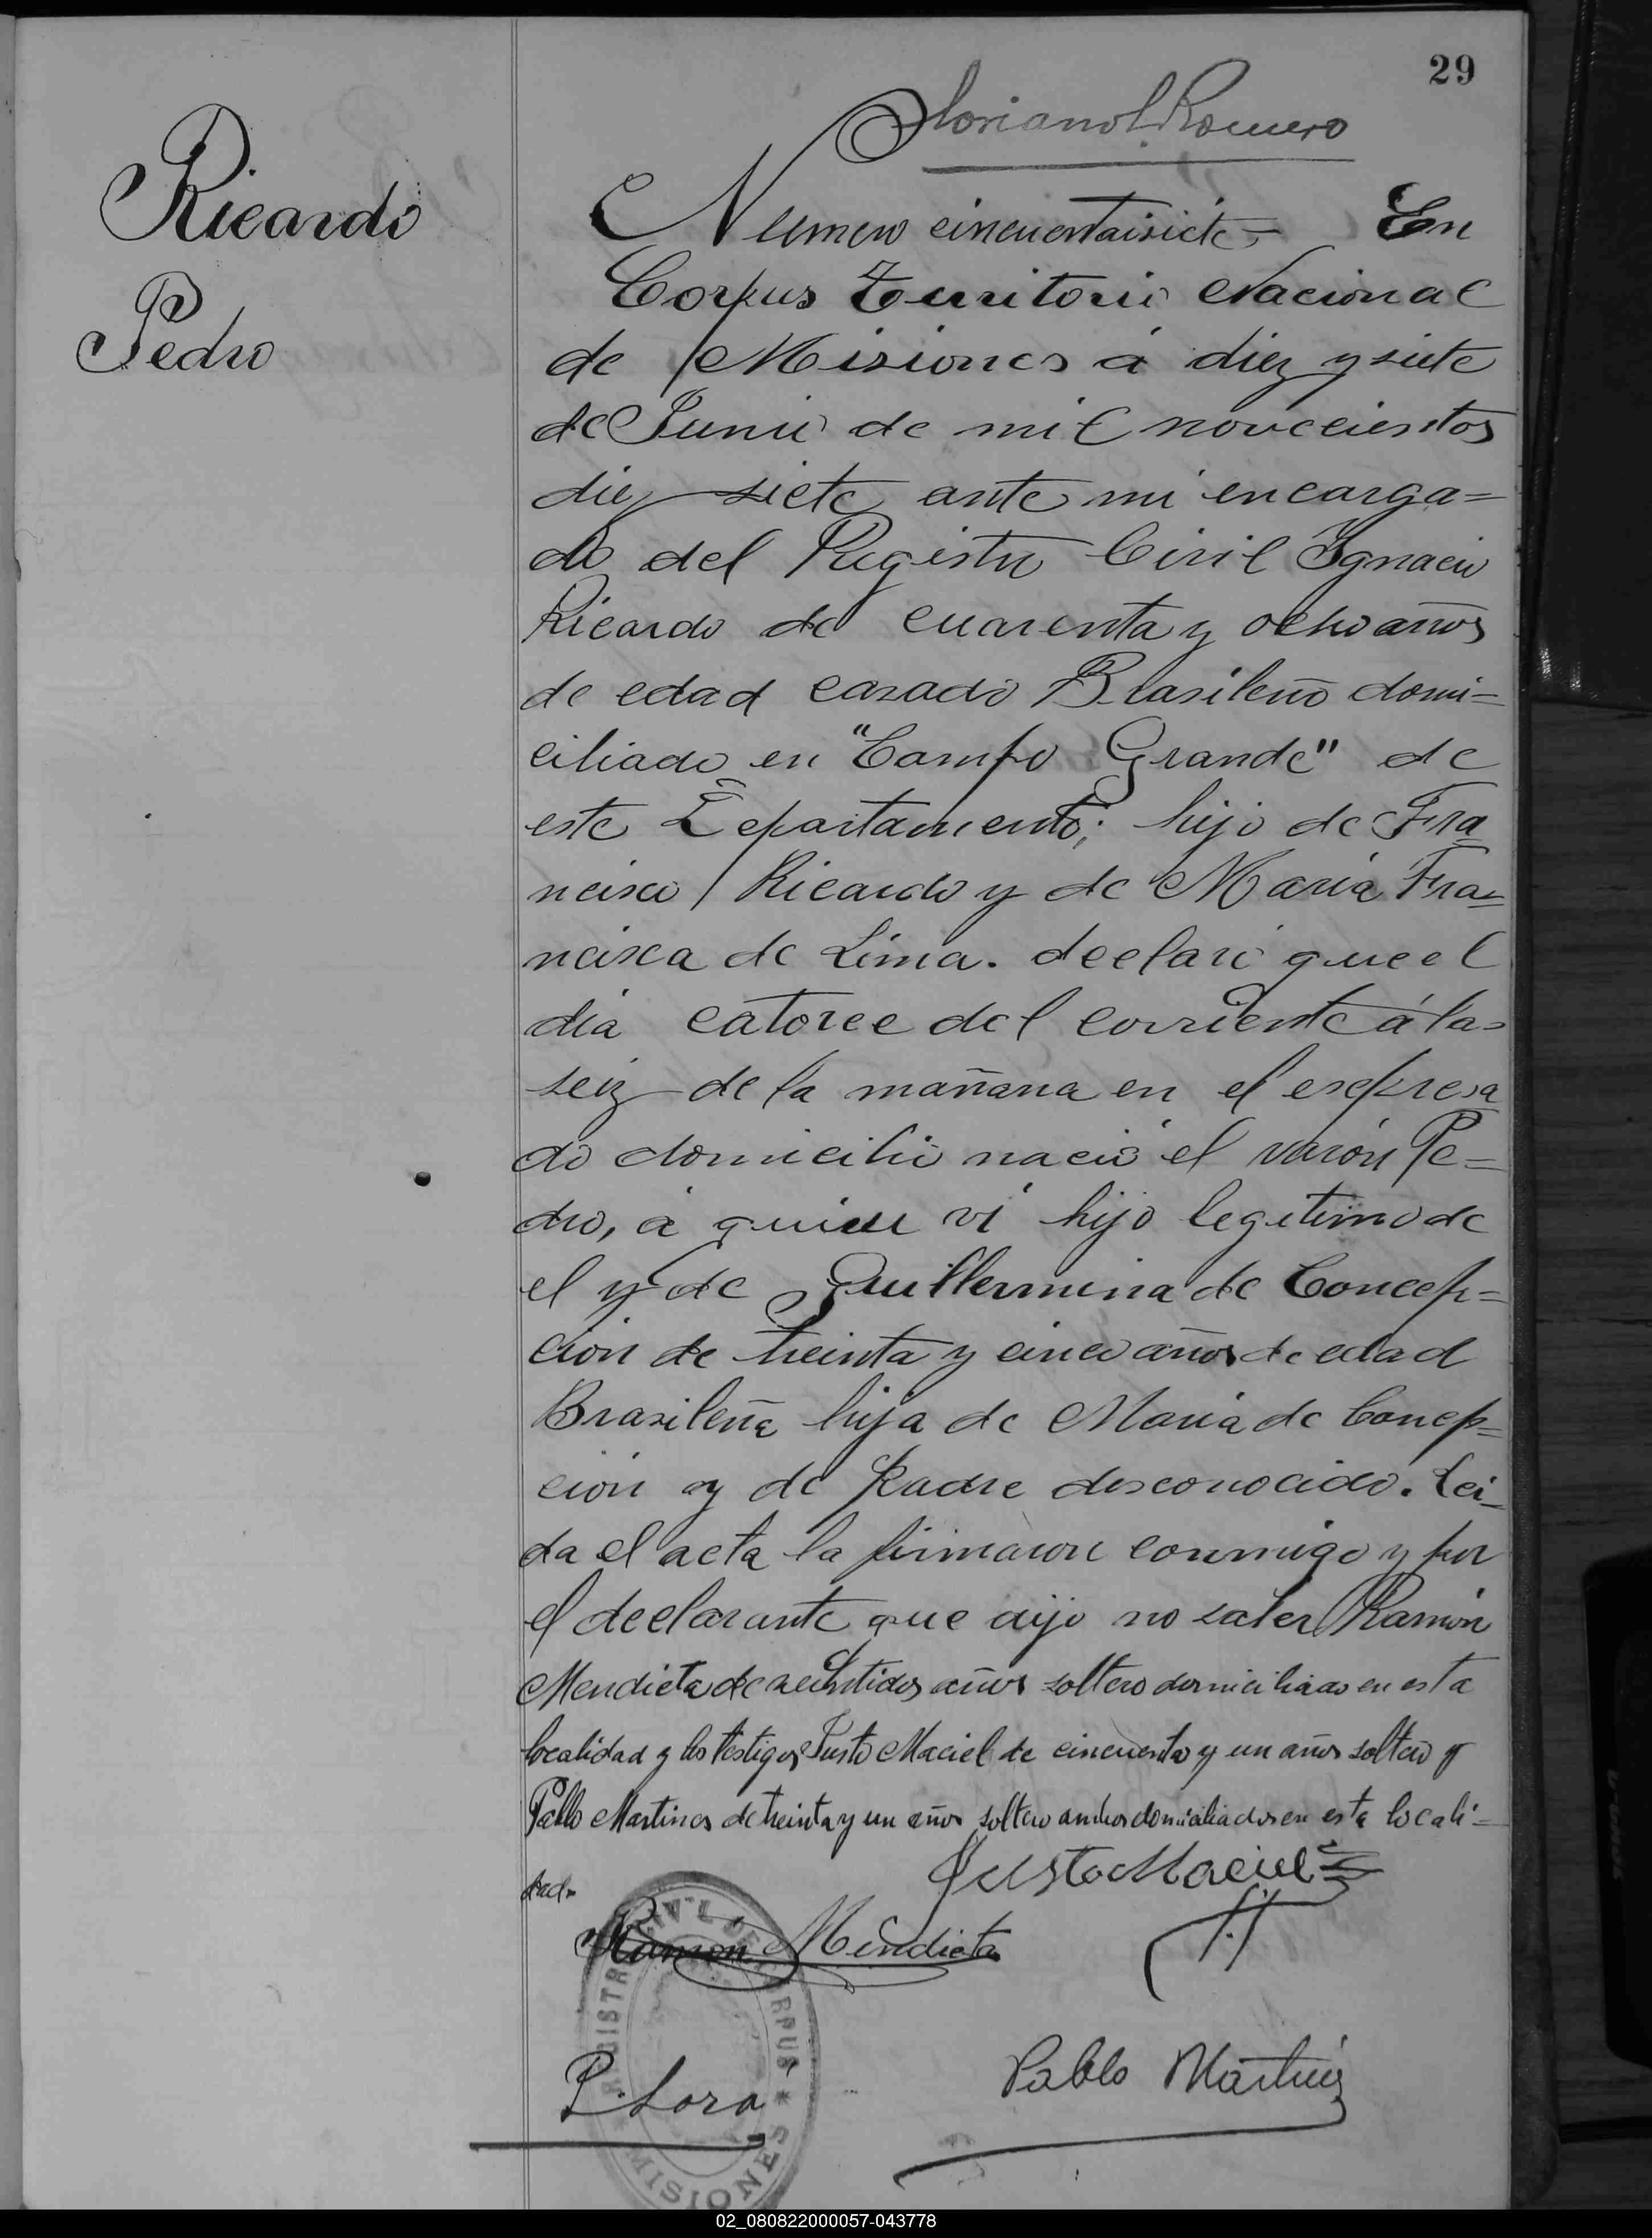 29
Floriano L. Romero
Ricardo
Pedro
Numero cincuentaisiete = En
Corpus Territorio Nacional
de Misiones á diez y siete
de Junio de mil novecientos
diez siete ante mi encarga=
do del Registro Civil Ignacio
Ricardo de cuarenta y ocho años
de edad casado Brasileño domi=
ciliado en "Campo Grande" de
este Departamento; hijo de Fra
ncisco Ricardo y de Maria Fra=
ncisca de Lima. declaró que el
dia catorce del corriente á las
seiz de la mañana en el esepresa
do domicilio nació el varón Pe=
dro, á quien vi hijo legitimo de
el y de Guillermina de Concep=
cion de treinta y cinco años de edad
Brasileña hija de Maria de Concep=
cion y de Padre desconocido. Lei=
da el acta la firmaron conmigo y por
el declarante que dijo no saber Ramón
Mendieta de veintidos años soltero domiciliado en esta
localidad y los testigos Justo Maciel de cincuenta y un años soltero y
Pablo Martines de treinta y un años soltero ambos domiciliados en esta locali=
dad.
Justo Maciel
Ramon Mendieta
P. Lora
Pablo Martinez
REGISTRO CIVIL DE CORPUS * MISIONES
02_080822000057-043778